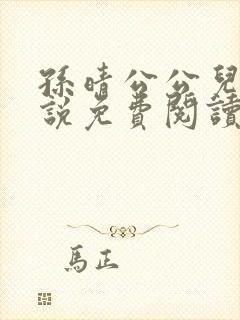 孫晴公公兒
說免費閱讀
馬正